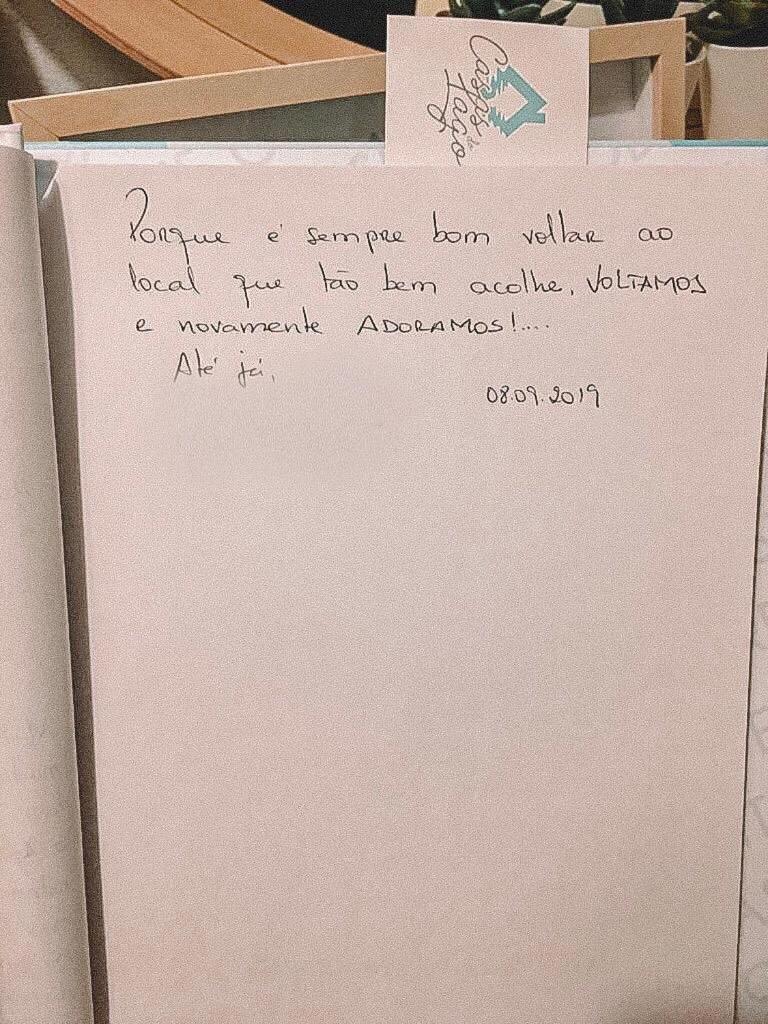 Casas
do Lago
Porque é sempre bom voltar ao
local que tão bem acolhe, VOLTAMOS
e novamente ADORAMOS!....
Até já,
08.09.2019